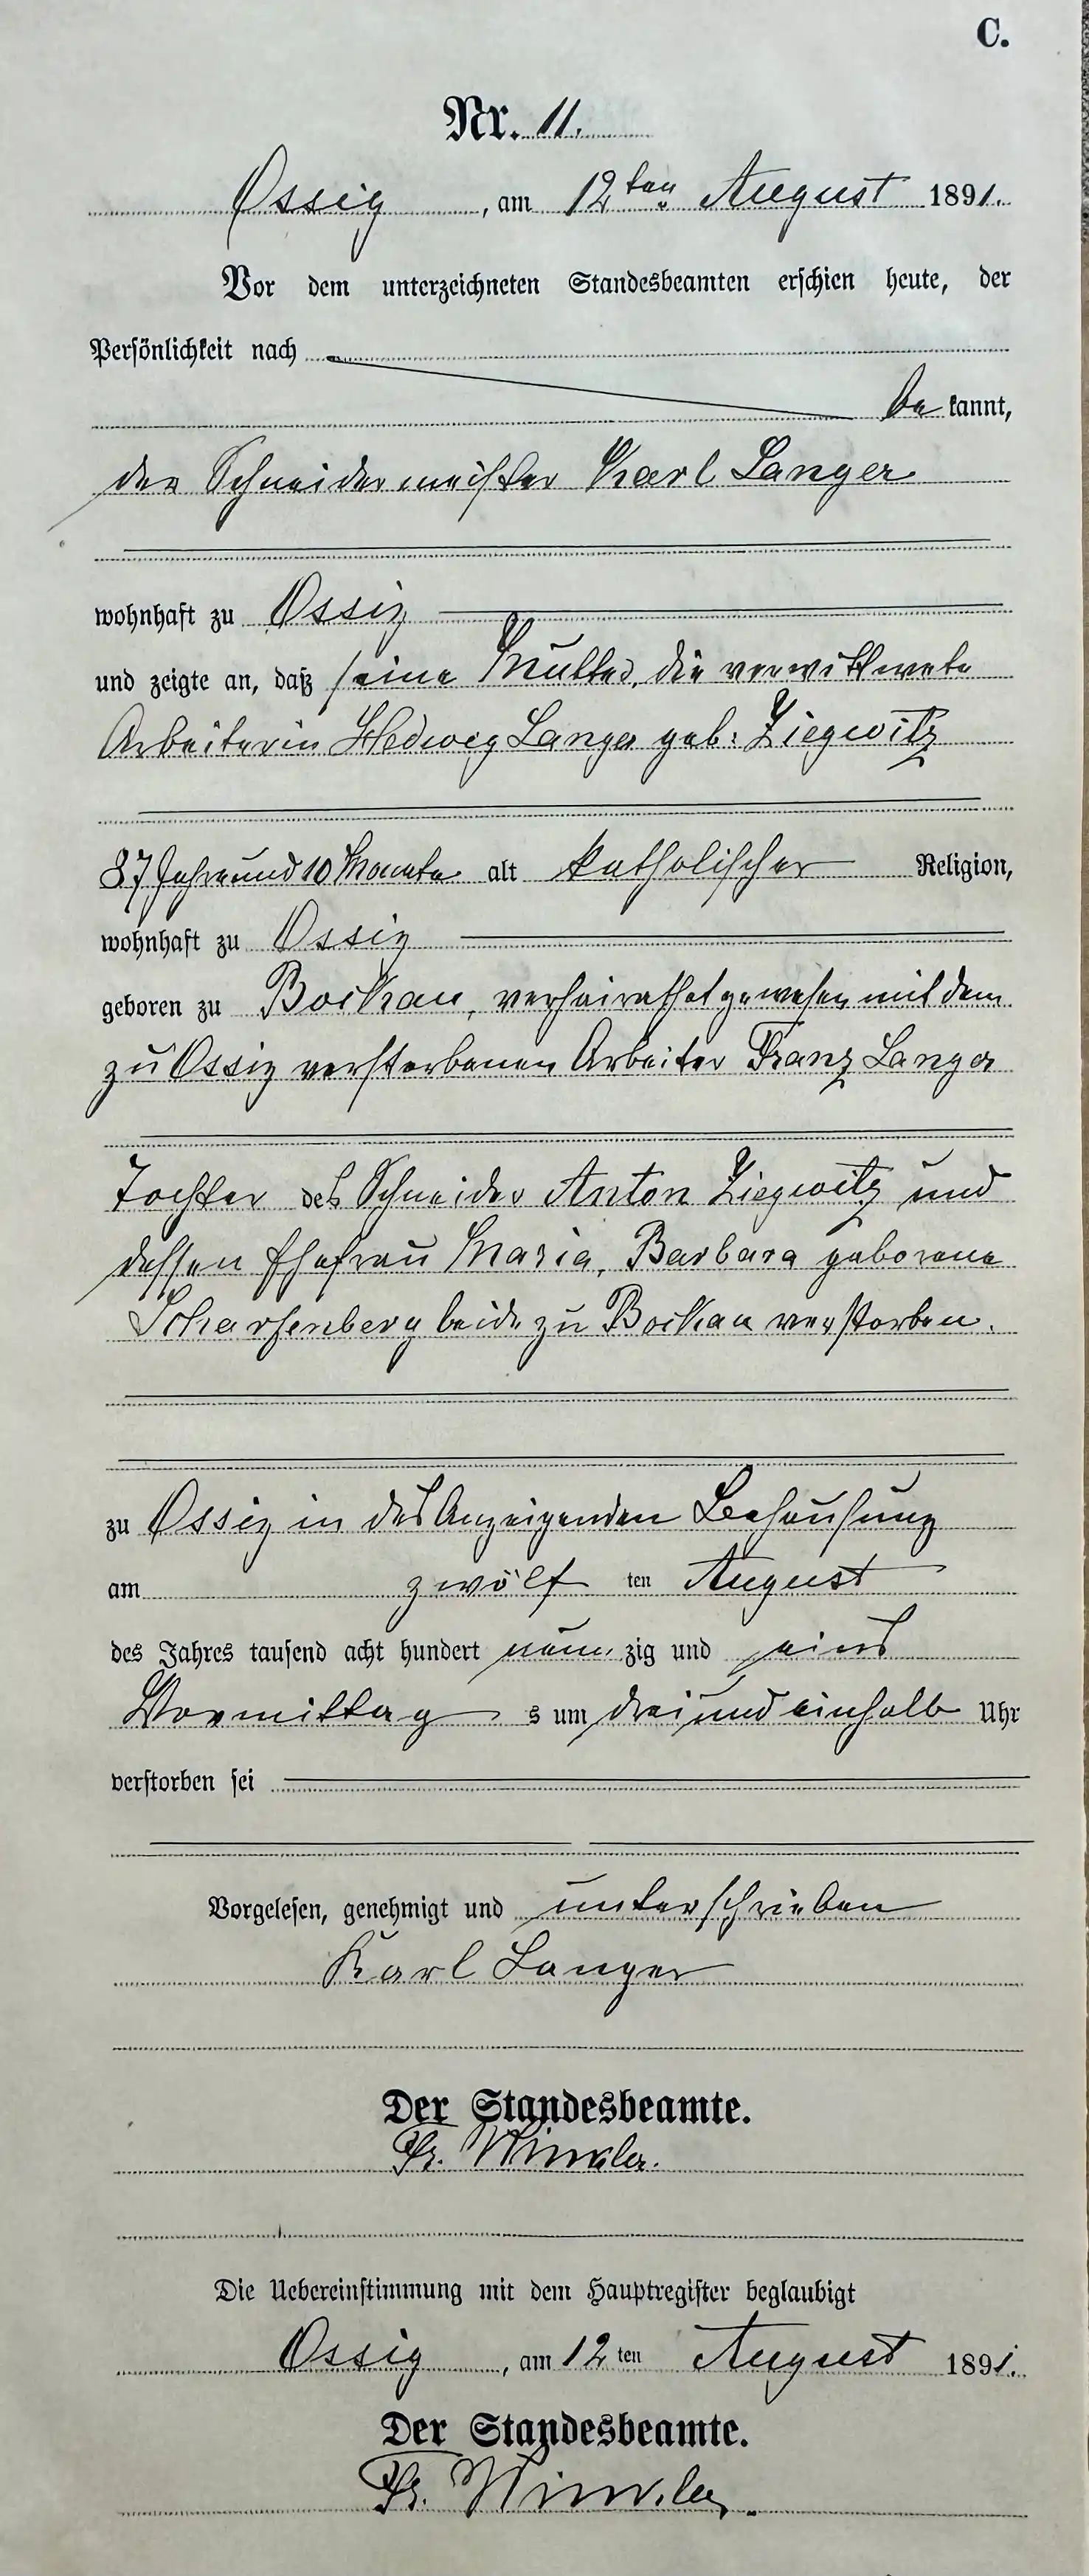 C.
Nr. 11.
Ossig, am 12ten August 1891.
Vor dem unterzeichneten Standesbeamten erschien heute, der
Persönlichkeit nach
be kannt,
der Schneidermeister Karl Langer
wohnhaft zu Ossig
und zeigte an, daß seine Mutter, die verwittwete
Arbeiterin Hedwig Langer geb: Ziegwitz
87 Jahre und 10 Monate alt katholischer Religion,
wohnhaft zu Ossig
geboren zu Bockau, verheirathet gewesen mit dem
zu Ossig verstorbenen Arbeiter Franz Langer
Tochter des Schneider Anton Ziegwitz und
dessen Ehefrau Maria, Barbara geborene
Scharfenberg beide zu Bockau verstorben.
zu Ossig in des Anzeigenden Behausung
am zwölf ten August
des Jahres tausend acht hundert neun zig und eins
Vormittag s um drei und einhalb Uhr
verstorben sei
Vorgelesen, genehmigt und unterschrieben
Karl Langer
Der Standesbeamte.
Fr. Winkler.
Die Uebereinstimmung mit dem Hauptregister beglaubigt
Ossig, am 12 ten August 1891.
Der Standesbeamte.
Fr. Winkler.